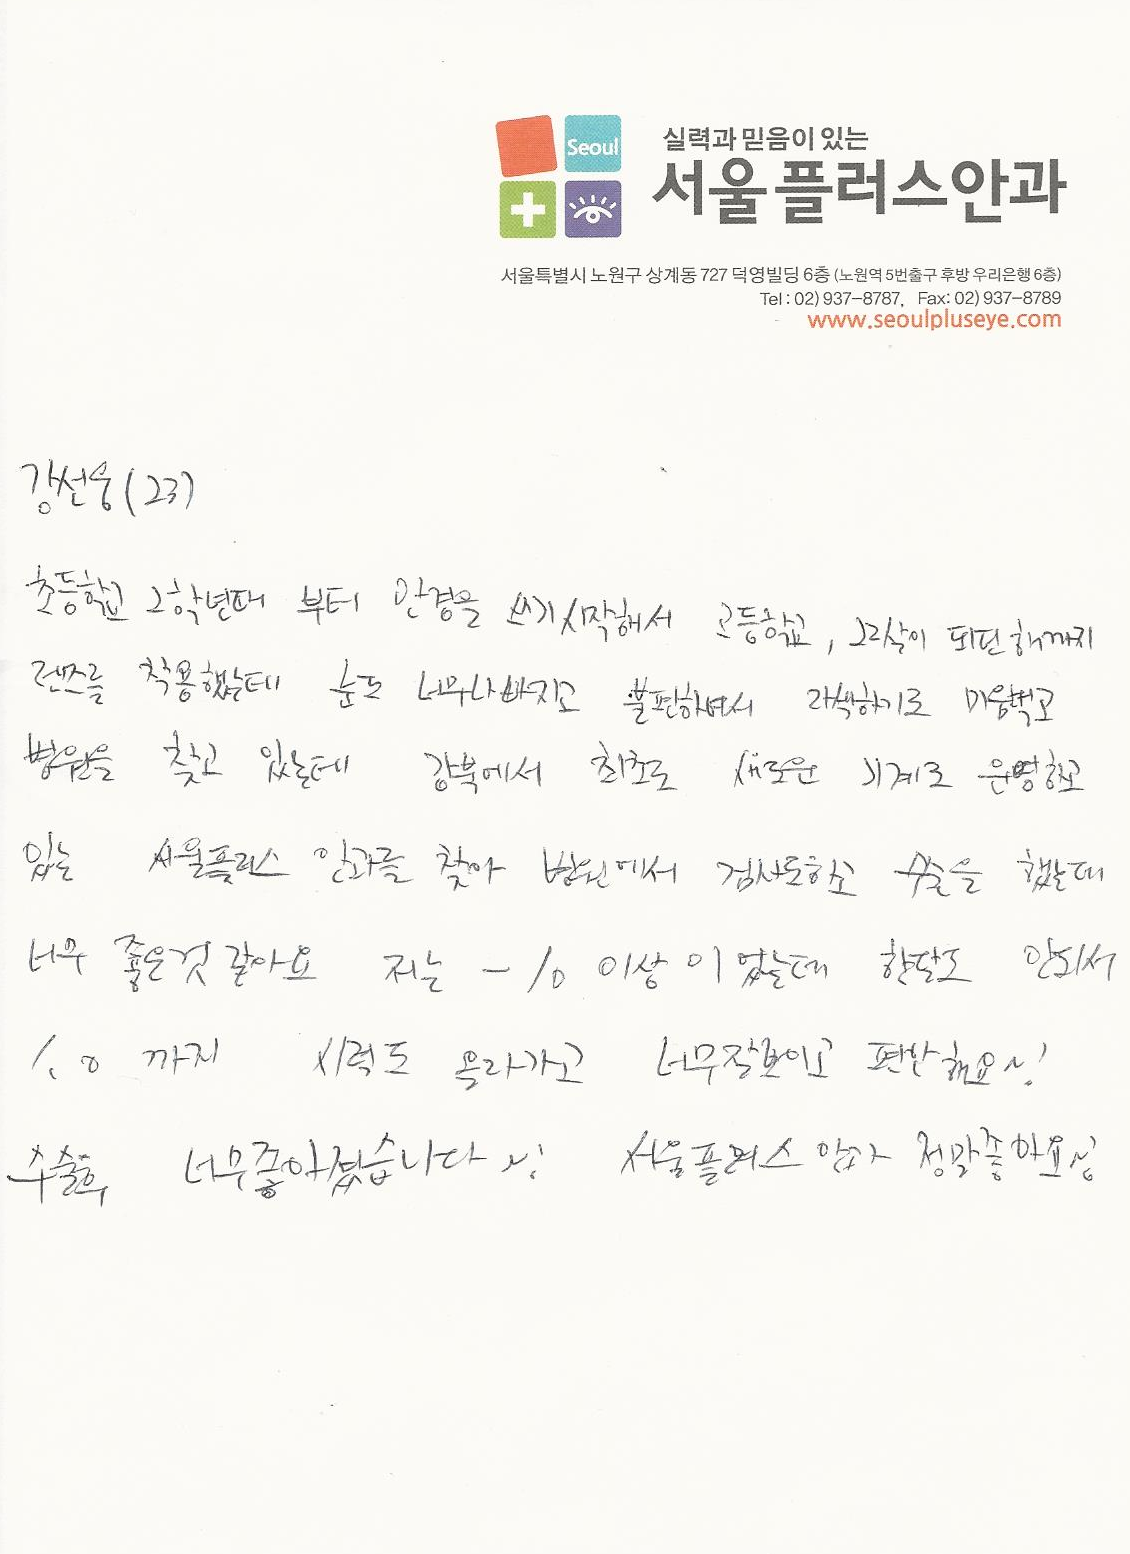 Seoul
실력과 믿음이 있는
서울플러스안과
서울특별시 노원구 상계동 727 덕영빌딩 6층 (노원역 5번출구 후방 우리은행 6층)
Tel : 02) 937-8787, Fax: 02) 937-8789
www.seoulpluseye.com
강선웅(23)
초등학교 2학년때 부터 안경을 쓰기시작해서 고등학교, 22살이 되던해까지
렌즈를 착용했는데 눈도 너무나빠지고 불편하여서 라섹하기로 마음먹고
병원을 찾고 있는데 강북에서 최초로 새로운 기계로 운영하고
있는 서울플러스 안과를 찾아 병원에서 검사도하고 수술을 했는데
너무 좋은것 같아요 저는 -10 이상 이었는데 한달도 안되서
1.0 까지 시력도 올라가고 너무잘보이고 편안해요~!
수술후 너무좋아졌습니다~! 서울플러스 안과 정말좋아요~!